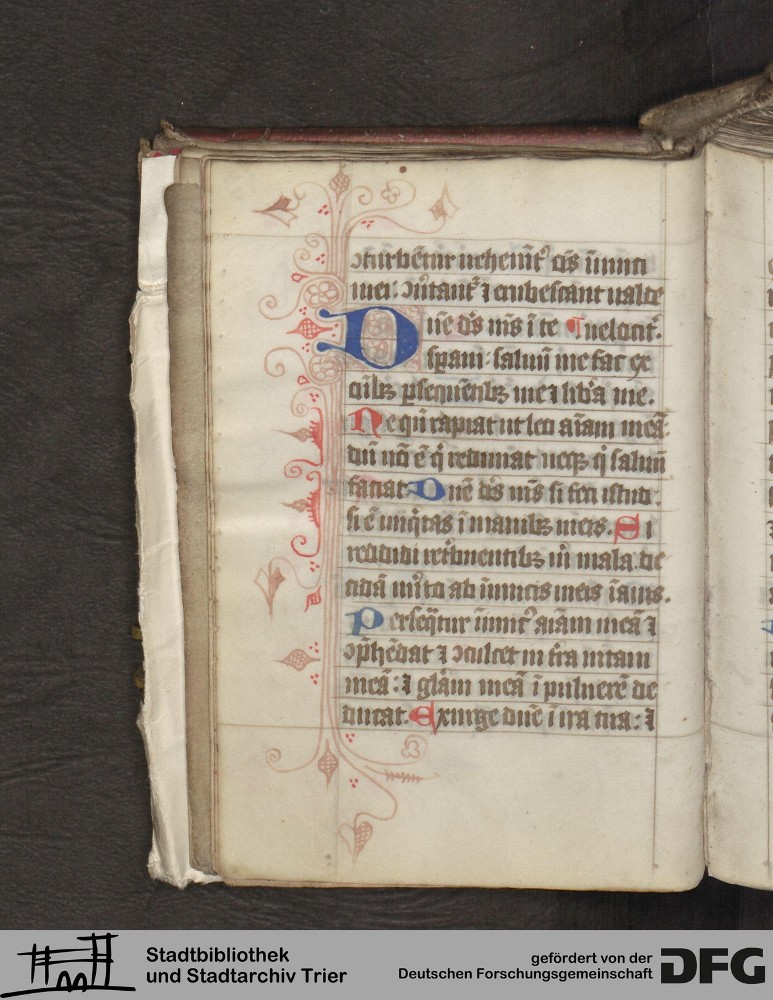 ↄturbēntur uehemēt᷑ oēs inimici
mei: ↄūtant᷑ ⁊ erubescant ualde
Dn̄e dēs mēs ī te uelocit᷑.
sperani: saluū me fac ex
oībꝫ ꝑsequētibꝫ me ⁊ lib̄a me.
Ne qn̄ rapiat ut leo aīam meā:
dū nō ē q̇ redimat neqꝫ q̇ saluū
faciat. Dn̄e dēs mēs si feci istud:
si ē iniq̇tas ī manibꝫ meis. Si
reddidi ret᷑buentibꝫ m̄ mala de
cidā m̄ito ab inimicis meis īanis.
Perseq̄tur inimic᷒ aīam meā ⁊
ↄp̄hēdat ⁊ ↄculcet in t̄ra uitam
meā: ⁊ glām meā ī puluerē de
ducat. Exurge dn̄e ī ira tua: ⁊
Stadtbibliothek
und Stadtarchiv Trier
gefördert von der
Deutschen Forschungsgemeinschaft
DFG